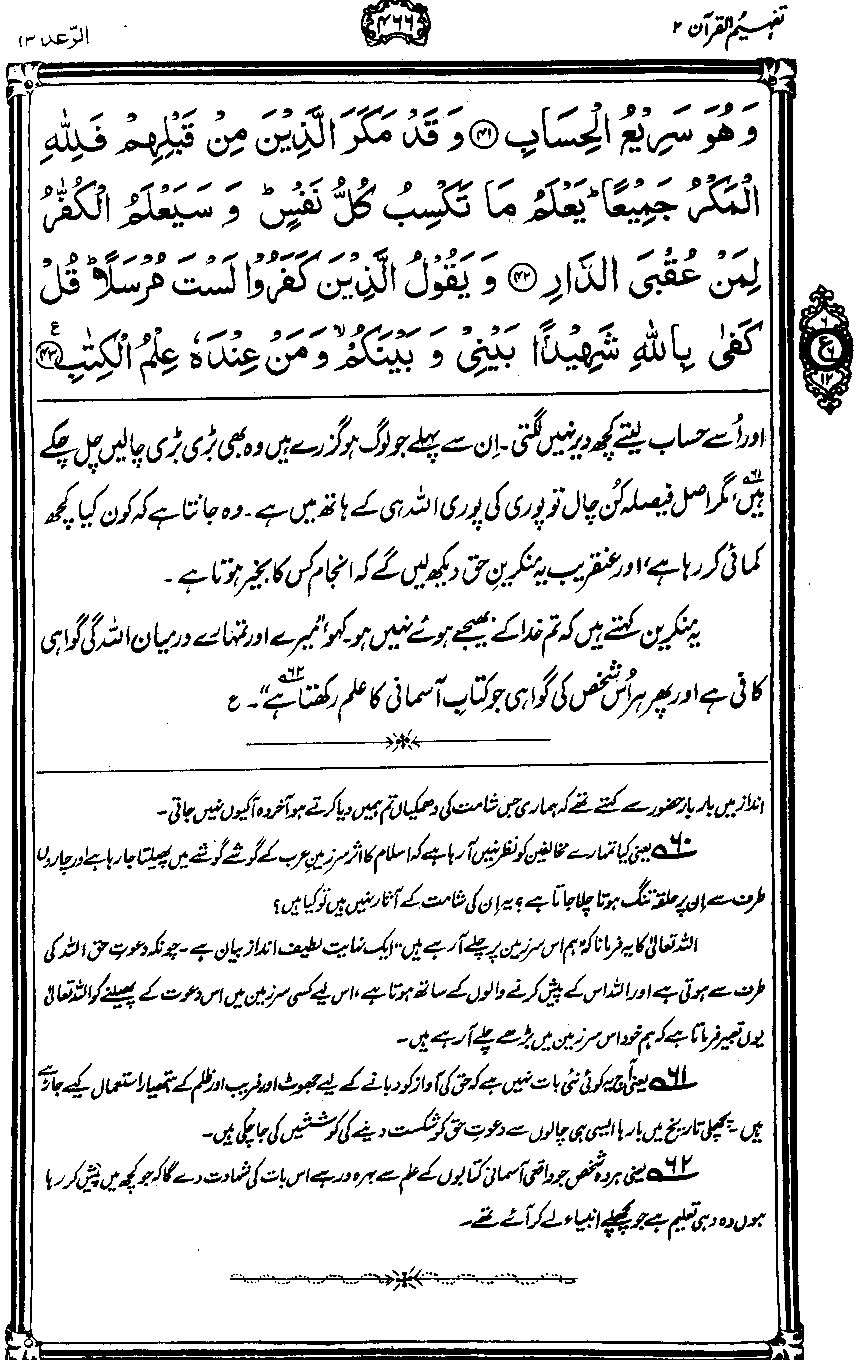 تفہیم القرآن ۲
۴۶۶
الرّعد ۱۳
وَهُوَ سَرِيْعُ الْحِسَابِ ۴۱ وَقَدْ مَكَرَ الَّذِيْنَ مِنْ قَبْلِهِمْ فَلِلّٰهِ
الْمَكْرُ جَمِيْعًا ؕ يَعْلَمُ مَا تَكْسِبُ كُلُّ نَفْسٍ ؕ وَسَيَعْلَمُ الْكُفّٰرُ
لِمَنْ عُقْبَى الدَّارِ ۴۲ وَيَقُوْلُ الَّذِيْنَ كَفَرُوْا لَسْتَ مُرْسَلًا ؕ قُلْ
كَفٰى بِاللّٰهِ شَهِيْدًۢا بَيْنِيْ وَبَيْنَكُمْ ۙ وَمَنْ عِنْدَهٗ عِلْمُ الْكِتٰبِ ۴۳ ع
۶
ع
۶
۱۲
اور اُسے حساب لیتے کچھ دیر نہیں لگتی۔ اِن سے پہلے جو لوگ ہو گزرے ہیں وہ بھی بڑی بڑی چالیں چل چکے
ہیں۶۱، مگر اصل فیصلہ کُن چال تو پوری کی پوری اللہ ہی کے ہاتھ میں ہے۔ وہ جانتا ہے کہ کون کیا کچھ
کمائی کر رہا ہے، اور عنقریب یہ منکرینِ حق دیکھ لیں گے کہ انجام کس کا بخیر ہوتا ہے۔
یہ منکرین کہتے ہیں کہ تم خدا کے بھیجے ہوئے نہیں ہو۔ کہو، ”میرے اور تمہارے درمیان اللہ کی گواہی
کافی ہے اور پھر ہر اُس شخص کی گواہی جو کتابِ آسمانی کا علم رکھتا ہے“۶۲۔ ع
انداز میں بار بار حضور سے کہتے تھے کہ ہماری جس شامت کی دھمکیاں تم ہمیں دیا کرتے ہو آخر وہ آ کیوں نہیں جاتی۔
۶۰ یعنی کیا تمہارے مخالفین کو نظر نہیں آ رہا ہے کہ اسلام کا اثر سرزمینِ عرب کے گوشے گوشے میں پھیلتا جا رہا ہے اور چاروں
طرف سے اِن پر حلقہ تنگ ہوتا چلا جاتا ہے؟ یہ اِن کی شامت کے آثار نہیں ہیں تو کیا ہیں؟
اللہ تعالیٰ کا یہ فرمانا کہ ”ہم اس سرزمین پر چلے آ رہے ہیں“ ایک نہایت لطیف اندازِ بیان ہے۔ چونکہ دعوتِ حق اللہ کی
طرف سے ہوتی ہے اور اللہ اس کے پیش کرنے والوں کے ساتھ ہوتا ہے، اس لیے کسی سرزمین میں اس دعوت کے پھیلنے کو اللہ تعالیٰ
یوں تعبیر فرماتا ہے کہ ہم خود اس سرزمین میں بڑھے چلے آ رہے ہیں۔
۶۱ یعنی آج یہ کوئی نئی بات نہیں ہے کہ حق کی آواز کو دبانے کے لیے جھوٹ اور فریب اور ظلم کے ہتھیار استعمال کیے جا رہے
ہیں۔ پچھلی تاریخ میں بارہا ایسی ہی چالوں سے دعوتِ حق کو شکست دینے کی کوششیں کی جا چکی ہیں۔
۶۲ یعنی ہر وہ شخص جو واقعی آسمانی کتابوں کے علم سے بہرہ ور ہے اس بات کی شہادت دے گا کہ جو کچھ میں پیش کر رہا
ہوں وہ وہی تعلیم ہے جو پچھلے انبیاء لے کر آئے تھے۔